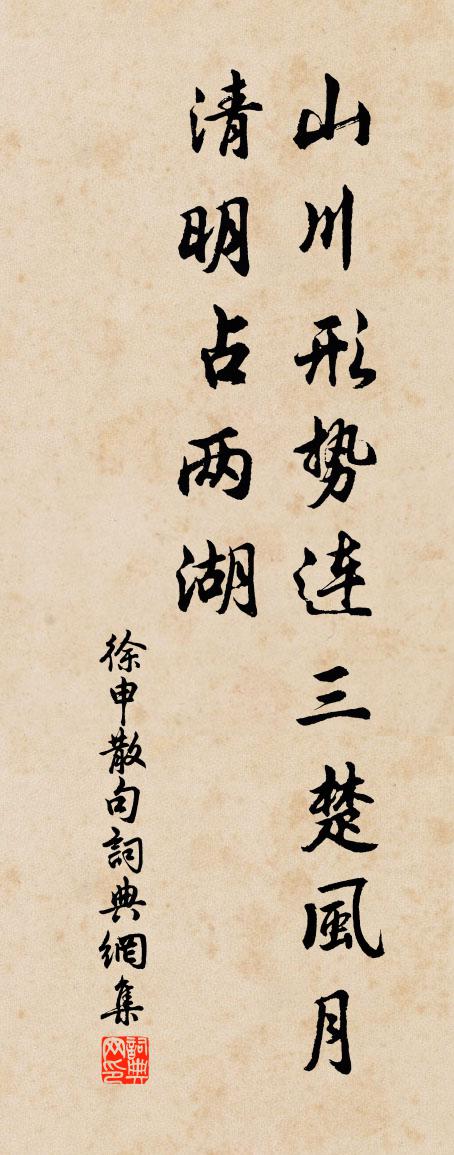 山川形势连三楚風月
清明占两湖
徐申散句詞典網集
詞典网印